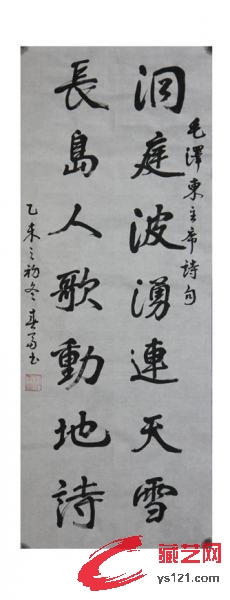 毛澤東主席詩句
洞庭波湧連天雪
長島人歌動地詩
乙未之初冬 春富书
藏艺网
ys121.com